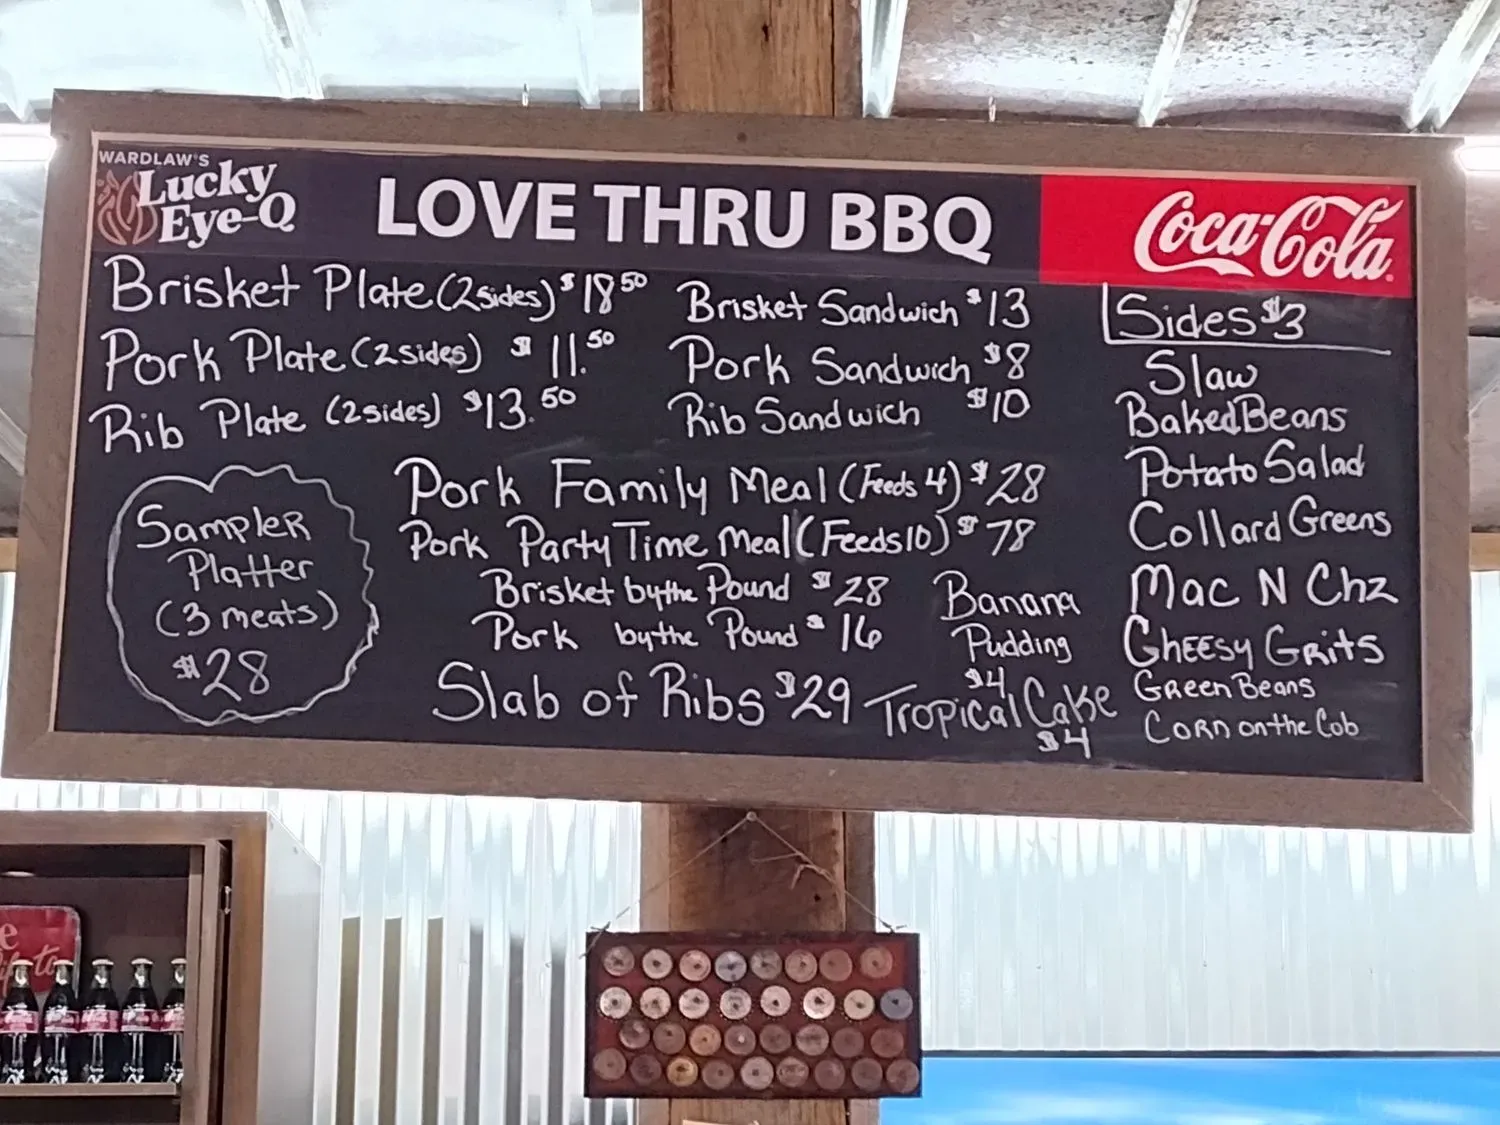 WARDLAW'S
Lucky
Eye-Q
LOVE THRU BBQ
Coca-Cola
Brisket Plate (2 sides) $18 50
Pork Plate (2 sides) $11.50
Rib Plate (2 sides) $13.50
Brisket Sandwich $13
Pork Sandwich $8
Rib Sandwich $10
Sampler
Platter
(3 meats)
$28
Pork Family Meal (Feeds 4) $28
Pork Party Time Meal (Feeds 10) $78
Brisket by the Pound $28
Pork by the Pound $16
Slab of Ribs $29
Banana
Pudding
$4
Tropical Cake
$4
Sides $3
Slaw
Baked Beans
Potato Salad
Collard Greens
Mac N Chz
Cheesy Grits
Green Beans
Corn on the Cob